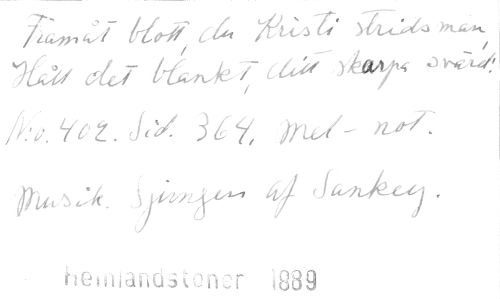 Framåt blott, du Kristi stridsman,
Håll det blankt, ditt skarpa svärd!
No. 402. Sid. 364, mel-not.
Musik. Sjungen af Sankey.
Hemlandstoner 1889